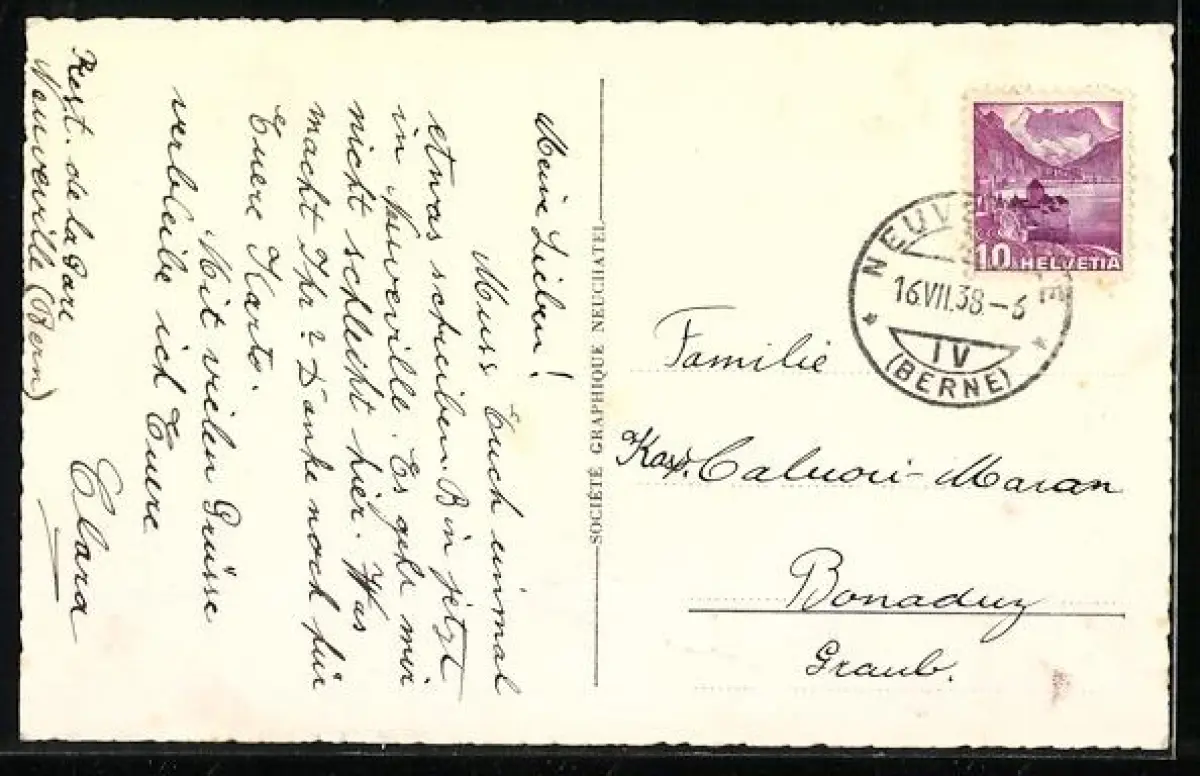 Meine Lieben!
Muss Euch einmal
etwas schreiben. Bin jetzt
in Neuveville. Es geht mir
nicht schlecht hier. Was
macht Ihr? Danke noch für
Euere Karte.
Mit vielen Grüsse
verbleibe ich Euere
Clara
Rest. de la Gare
Neuveville (Bern)
SOCIÉTÉ GRAPHIQUE NEUCHATEL
10 HELVETIA
NEUV
16.VII.38.-6
IV
(BERNE)
Familie
Kasp. Caluori-Maran
Bonaduz
Graub.